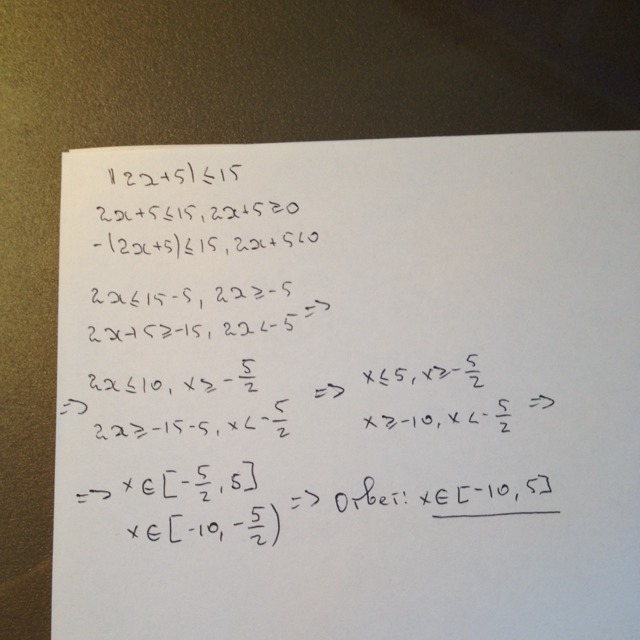 |2x+5|≤15
2x+5≤15, 2x+5≥0
-(2x+5)≤15, 2x+5<0
2x≤15-5, 2x≥-5
2x+5≥-15, 2x<-5 =>
=> 2x≤10, x≥-5/2 => x≤5, x≥-5/2
2x≥-15-5, x<-5/2 x≥-10, x<-5/2 =>
=> x∈[-5/2, 5] => Ответ: x∈[-10, 5]
x∈[-10, -5/2)